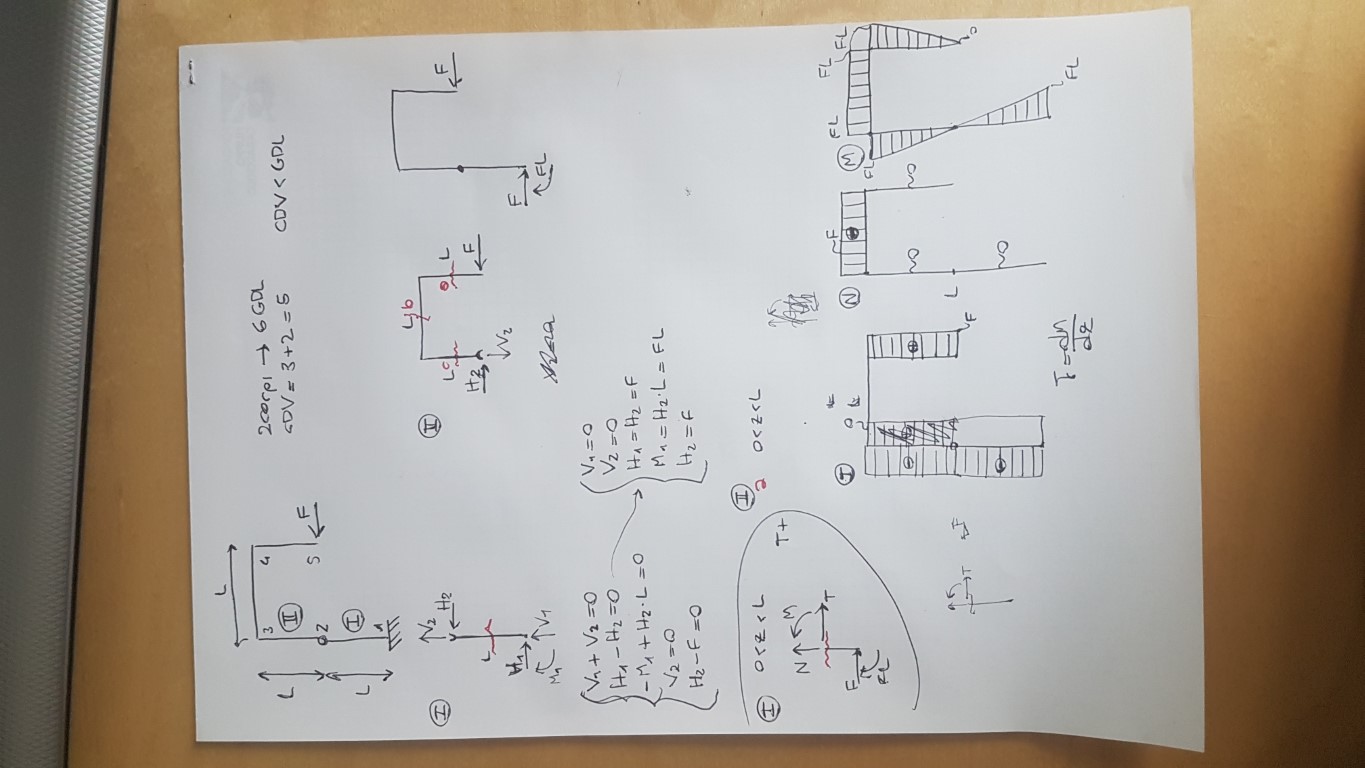 L
3 4
L II
2 5 F
L I
1
2 corpi → 6 GDL
GDV = 3+2 = 5 CDV < GDL
I
V₂
H₂
L
H₁
M₁ V₁
II
L b
L c L
H₂ F
V₂
F
F
FL
V₁ + V₂ = 0
H₁ - H₂ = 0
-M₁ + H₂·L = 0
V₂ = 0
H₂ - F = 0
V₁ = 0
V₂ = 0
H₁ = H₂ = F
M₁ = H₂·L = FL
H₂ = F
I 0 < z < L
N M T+
T
F
FL
II
a 0 < z < L
T
T 0
F
N F
0 0
L
0
M FL FL FL
FL
0
FL
T = dM/dz